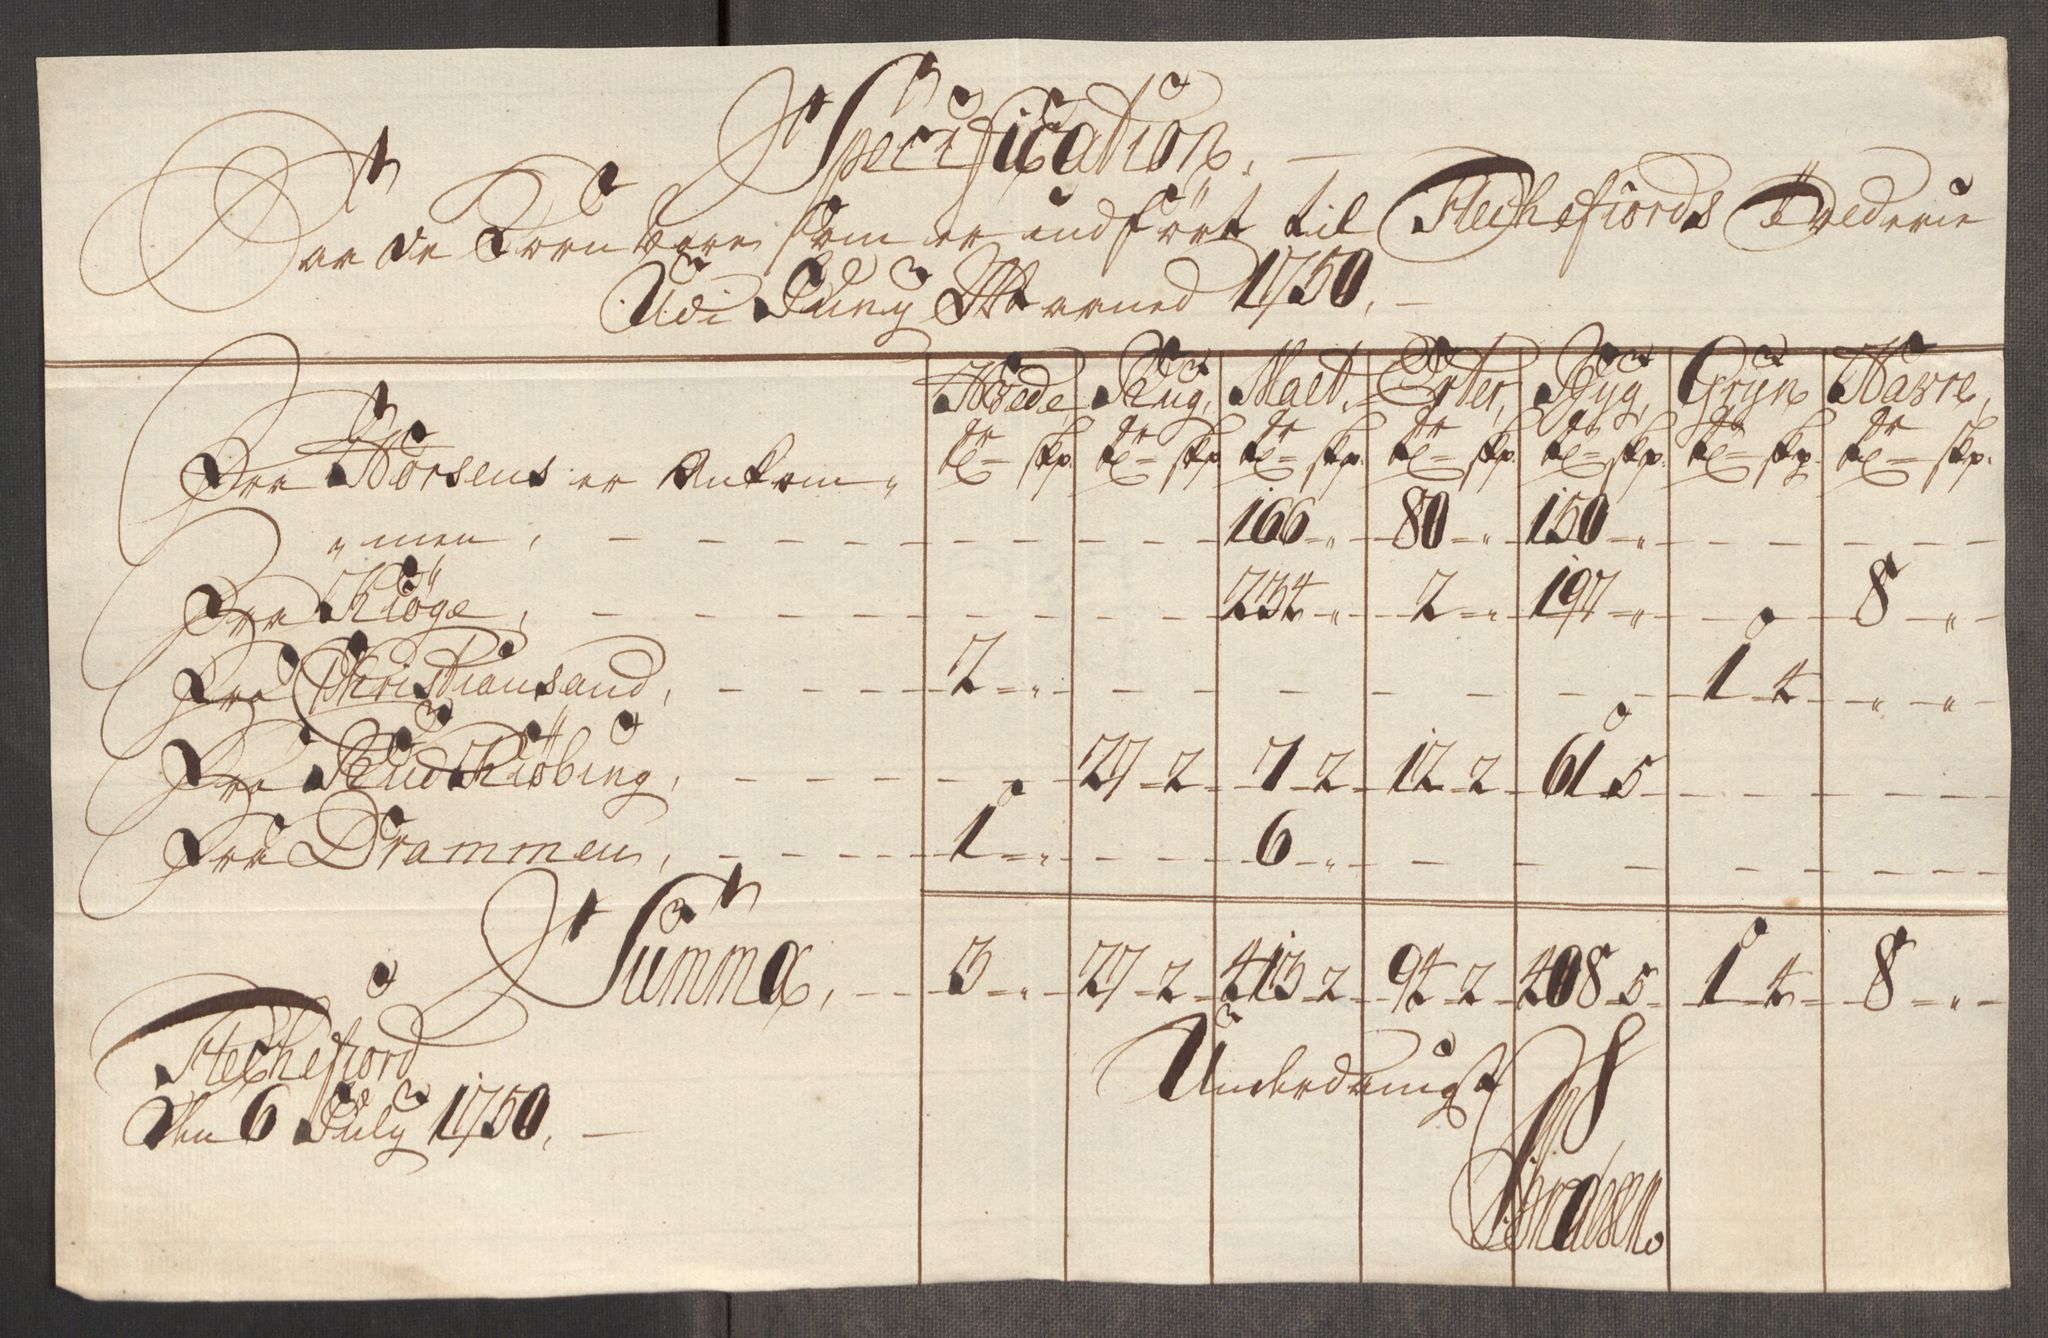 Specification
Paa de Korn vare som er indført til Flechefiords Tolderie
Udi Juny Maaned 1750,
Hvede Rug, Malt, Erter, Byg, Gryn Havre,
tr skp. tr skp tr skp. tr skp. tr skp. tr skp. tr skp.
Fra Horsens er Ankom„
„men, 166 „ 80 „ 150 „
Fra Kiöge, 234 „ 2 „ 197 „ 8 „
Fra Christiansand, 2 „ 1 4 „ „
Fra Rudkiöbing, 27 2 7 2 12 2 61 5
Fra Drammen, 1 „ 6 „
Summa, 3 „ 27 2 413 2 94 2 408 5 1 4 8 „
Flechefiord
den 6 July 1750,
Underdanigst